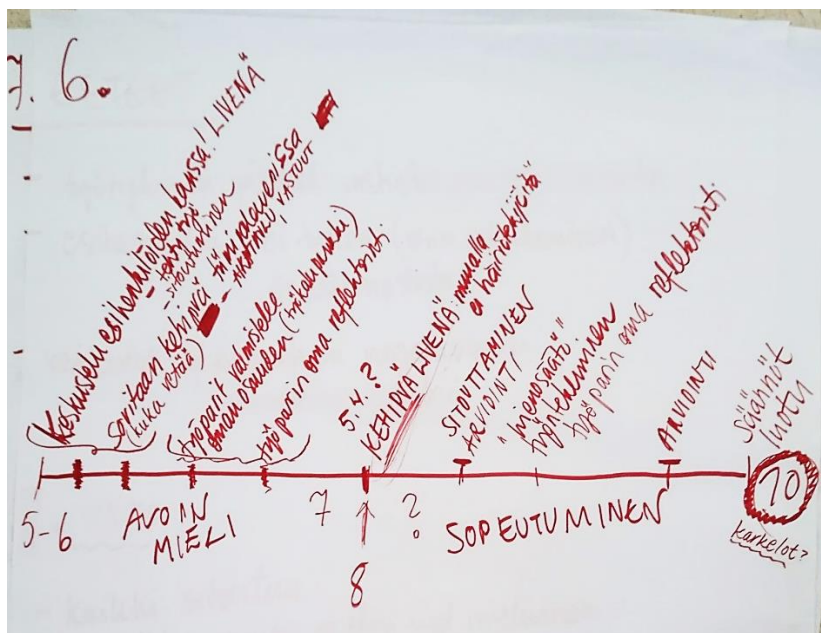 6.
Keskustelu esihenkilöiden kanssa! "LIVENÄ"
- tehty työ
- sitoutuminen
sovitaan kehipvä
(kuka vetää)
- tiimipalavereissa
- aikataulu, vastuut
työparit valmistelee
oman osuuden (työkalupakki)
työparin oma reflektointi
5.4.?
KEHIPVÄ "LIVENÄ" muualla
ei häiriötekijöitä
SITOUTTAMINEN
ARVIOINTI
"hienosäätö"
työntekeminen
työparin oma reflektointi
ARVIOINTI
säännöt
5-6
AVOIN
MIELI
7
8
?
SOPEUTUMINEN
10
karkelot?